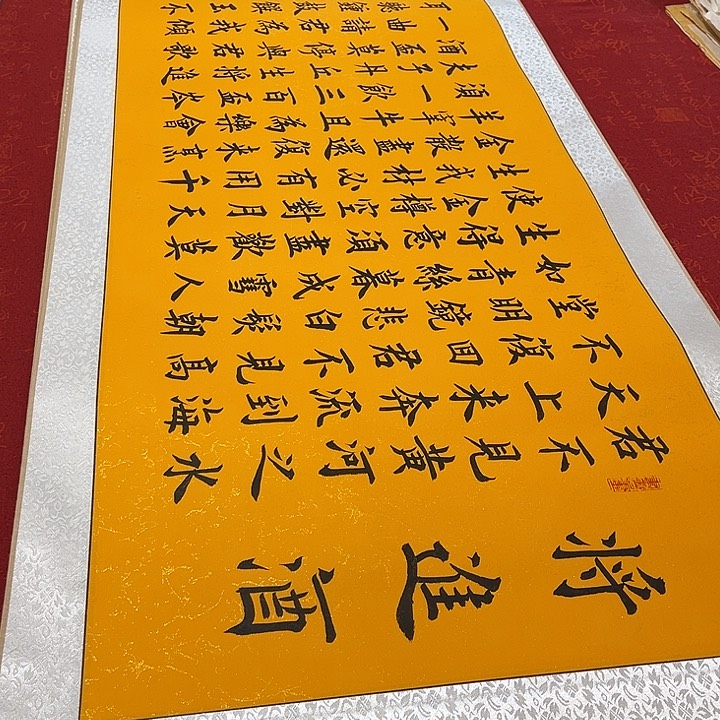 將進酒
君不見黃河之水
天上來奔流到海
不復回君不見高
堂明鏡悲白髮朝
如青絲暮成雪人
生得意須盡歡莫
使金樽空對月天
生我材必有用千
金散盡還復來烹
羊宰牛且為樂會
須一飲三百盃岑
夫子丹丘生將進
酒盃莫停與君歌
一曲請君為我傾
耳聽鐘鼓饌玉不